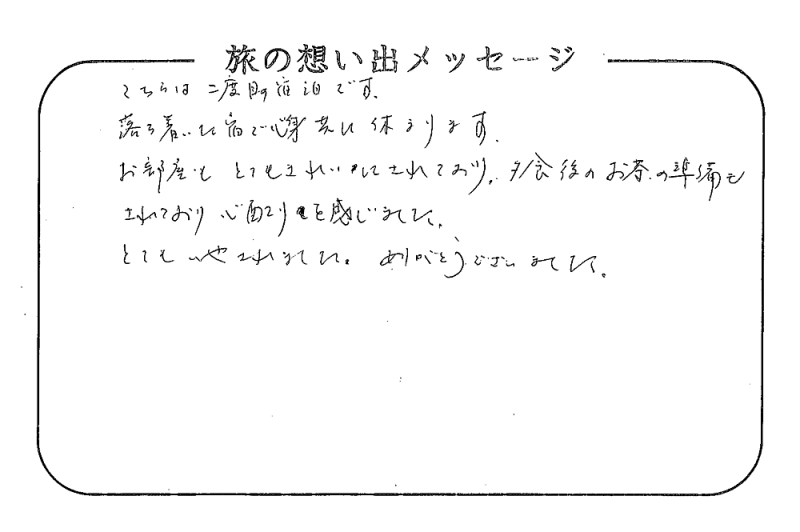 旅の想い出メッセージ
こちらは二度目の宿泊です。
落ち着いた宿で心身共に休まります。
お部屋もとてもきれいにされており、夕食後のお茶の準備も
されており心配りを感じました。
とてもいやされました。ありがとうございました。